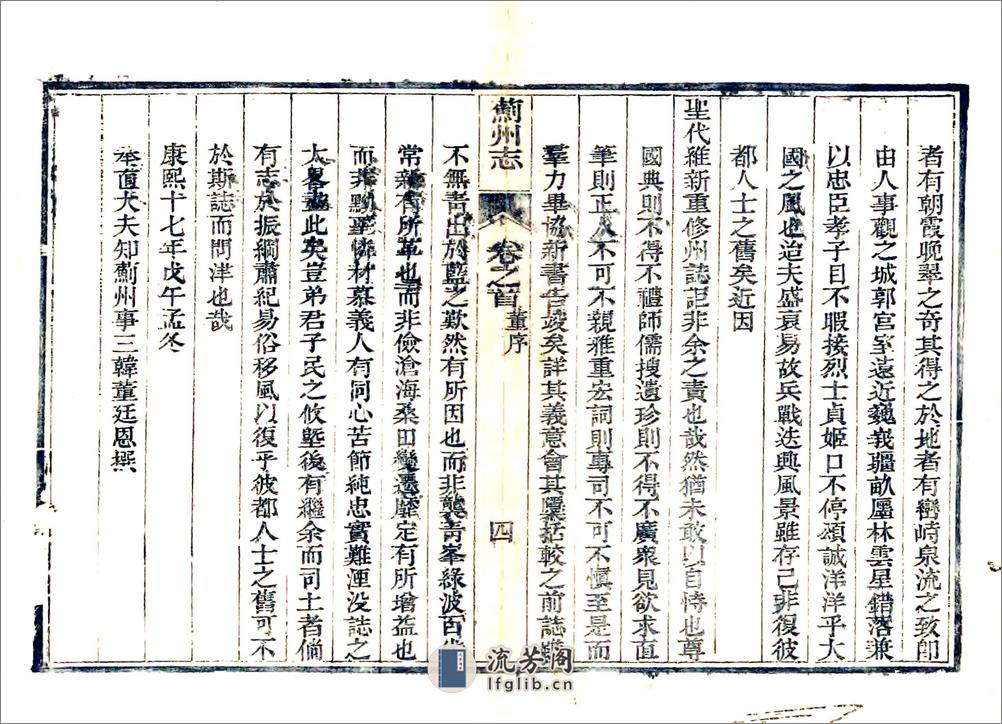 者有朝霞晚翠之奇其得之於地者有巒峙泉流之致即
由人事觀之城郭宮室遠近巍峩疆畝廛林雲星錯落兼
以忠臣孝子目不暇接烈士貞姬口不停頌誠洋洋乎大
國之風也迨夫盛衰易故兵戰迭興風景雖存已非復彼
都人士之舊矣近因
聖代維新重修州誌詎非余之責也哉然猶未敢以自恃也尊
國典則不得不禮師儒搜遺珍則不得不廣衆見欲求直
筆則正人不可不親雅重宏詞則專司不可不慎至是而
羣力畢協新書告竣矣詳其義意會其檃括較之前誌
薊州志
卷之首
董序
四
不無靑出於藍之歎然有所因也而非襲靑峯綠波百
常新有所革也而非儉滄海桑田變遷靡定有所增益也
而非黷聖憐材慕義人有同心苦節純忠實難湮沒誌之
大畧盡此矣豈弟君子民之攸塈後有繼余而司土者倘
有志於振綱肅紀易俗移風以復乎彼都人士之舊可不
於斯誌而問津也哉
康熙十七年戊午孟冬
奉直大夫知薊州事三韓董廷恩撰
流芳閣
lfglib.cn